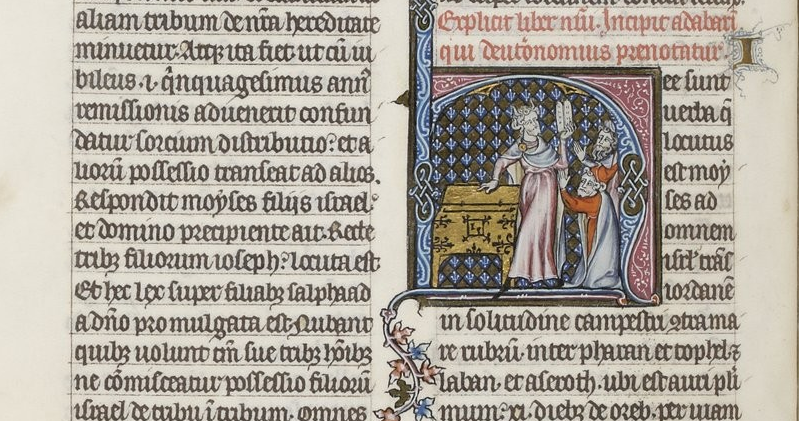 aliam tribum de nr̃a hereditate
minuetur. Atq; ita fiet. ut cũ iu
bileus .i. q̃nquagesimus anñ
remissionis aduenerit confun
datur sorcium distributio? et a
liorũ possessio transeat ad alios.
Respondit moyses filijs israel?
et domino precipiente ait. Recte
tribꝫ filiorum ioseph? locuta est
Et hec lex super filiabꝫ salphaad
a dño promulgata est. Nubant
quibꝫ uolunt tm̃ sue tribꝫ hõibꝫ
ne cõmisceatur possessio filiorũ
israel de tribu ĩ tribum. Omnes
Explicit liber nũi. Incipit adabarĩ
qui deut̃onomius prenotatur
I
ec sunt
uerba q̃
locutus
est moy
ses ad
omnem
isrl̃ trãs
iordanẽ
in solitudine campestri ꝯtra ma
re rubrũ. inter pharan et tophel ⁊
laban. et aseroth. ubi est auri pli
mum? xi. diebꝫ de oreb. per uiam